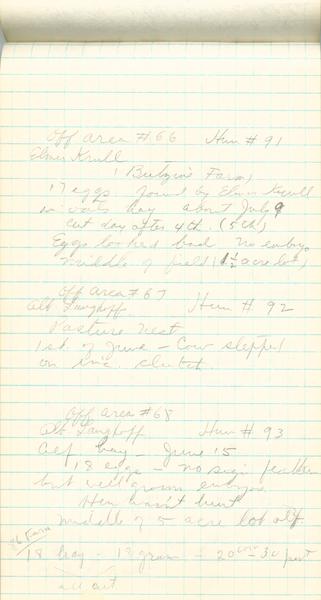 Off area #66 Hun #91
Elmer Krull
(Butzine Farm)
17 eggs found by Elmer Krull
in oats hay about July 9
cut day after 4th. (5th)
Eggs looked bad no embryo
middle of field (1½ acre lot)
Off area #67
Alb Langhoff Hun # 92
Pasture nest
1st of June - Cow stepped
on inc. clutch.
Off area #68
Alb Langhoff Hun # 93
Alf hay - June 15
18 eggs - no sign feathers
but well grown embryos
Hen wasn't hurt
middle of 5 acre lot alf.
86 Farm
18 hay - 18 grain - 20 corn - 30 past
all out